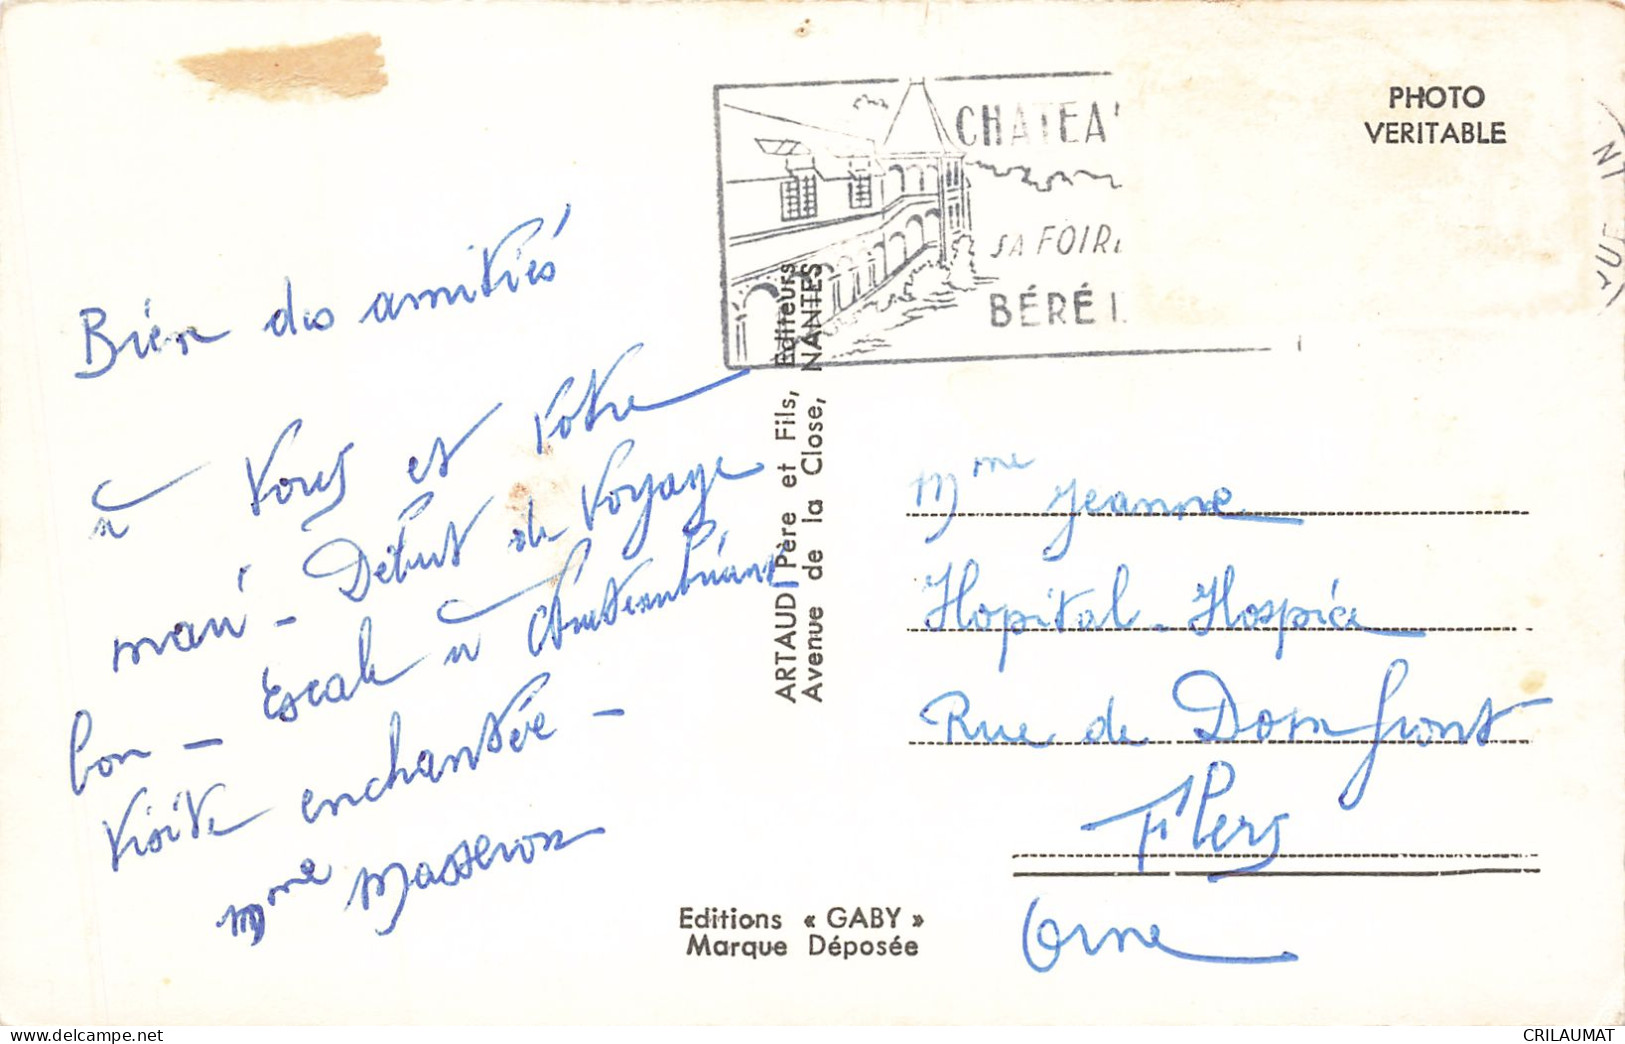 Bien des amitiés
à vous et votre
mari - Début de voyage
bon - Escale à Chateaubriant
visite enchantée -
Mme Masseron
CHATEA
SA FOIRE
BÉRÉ
PHOTO
VERITABLE
ARTAUD Père et Fils, Editeurs
Avenue de la Close, NANTES
Mme Jeanne
Hopital - Hospice
Rue de Domfront
Flers
Orne
Editions « GABY »
Marque Déposée
CRILAUMAT